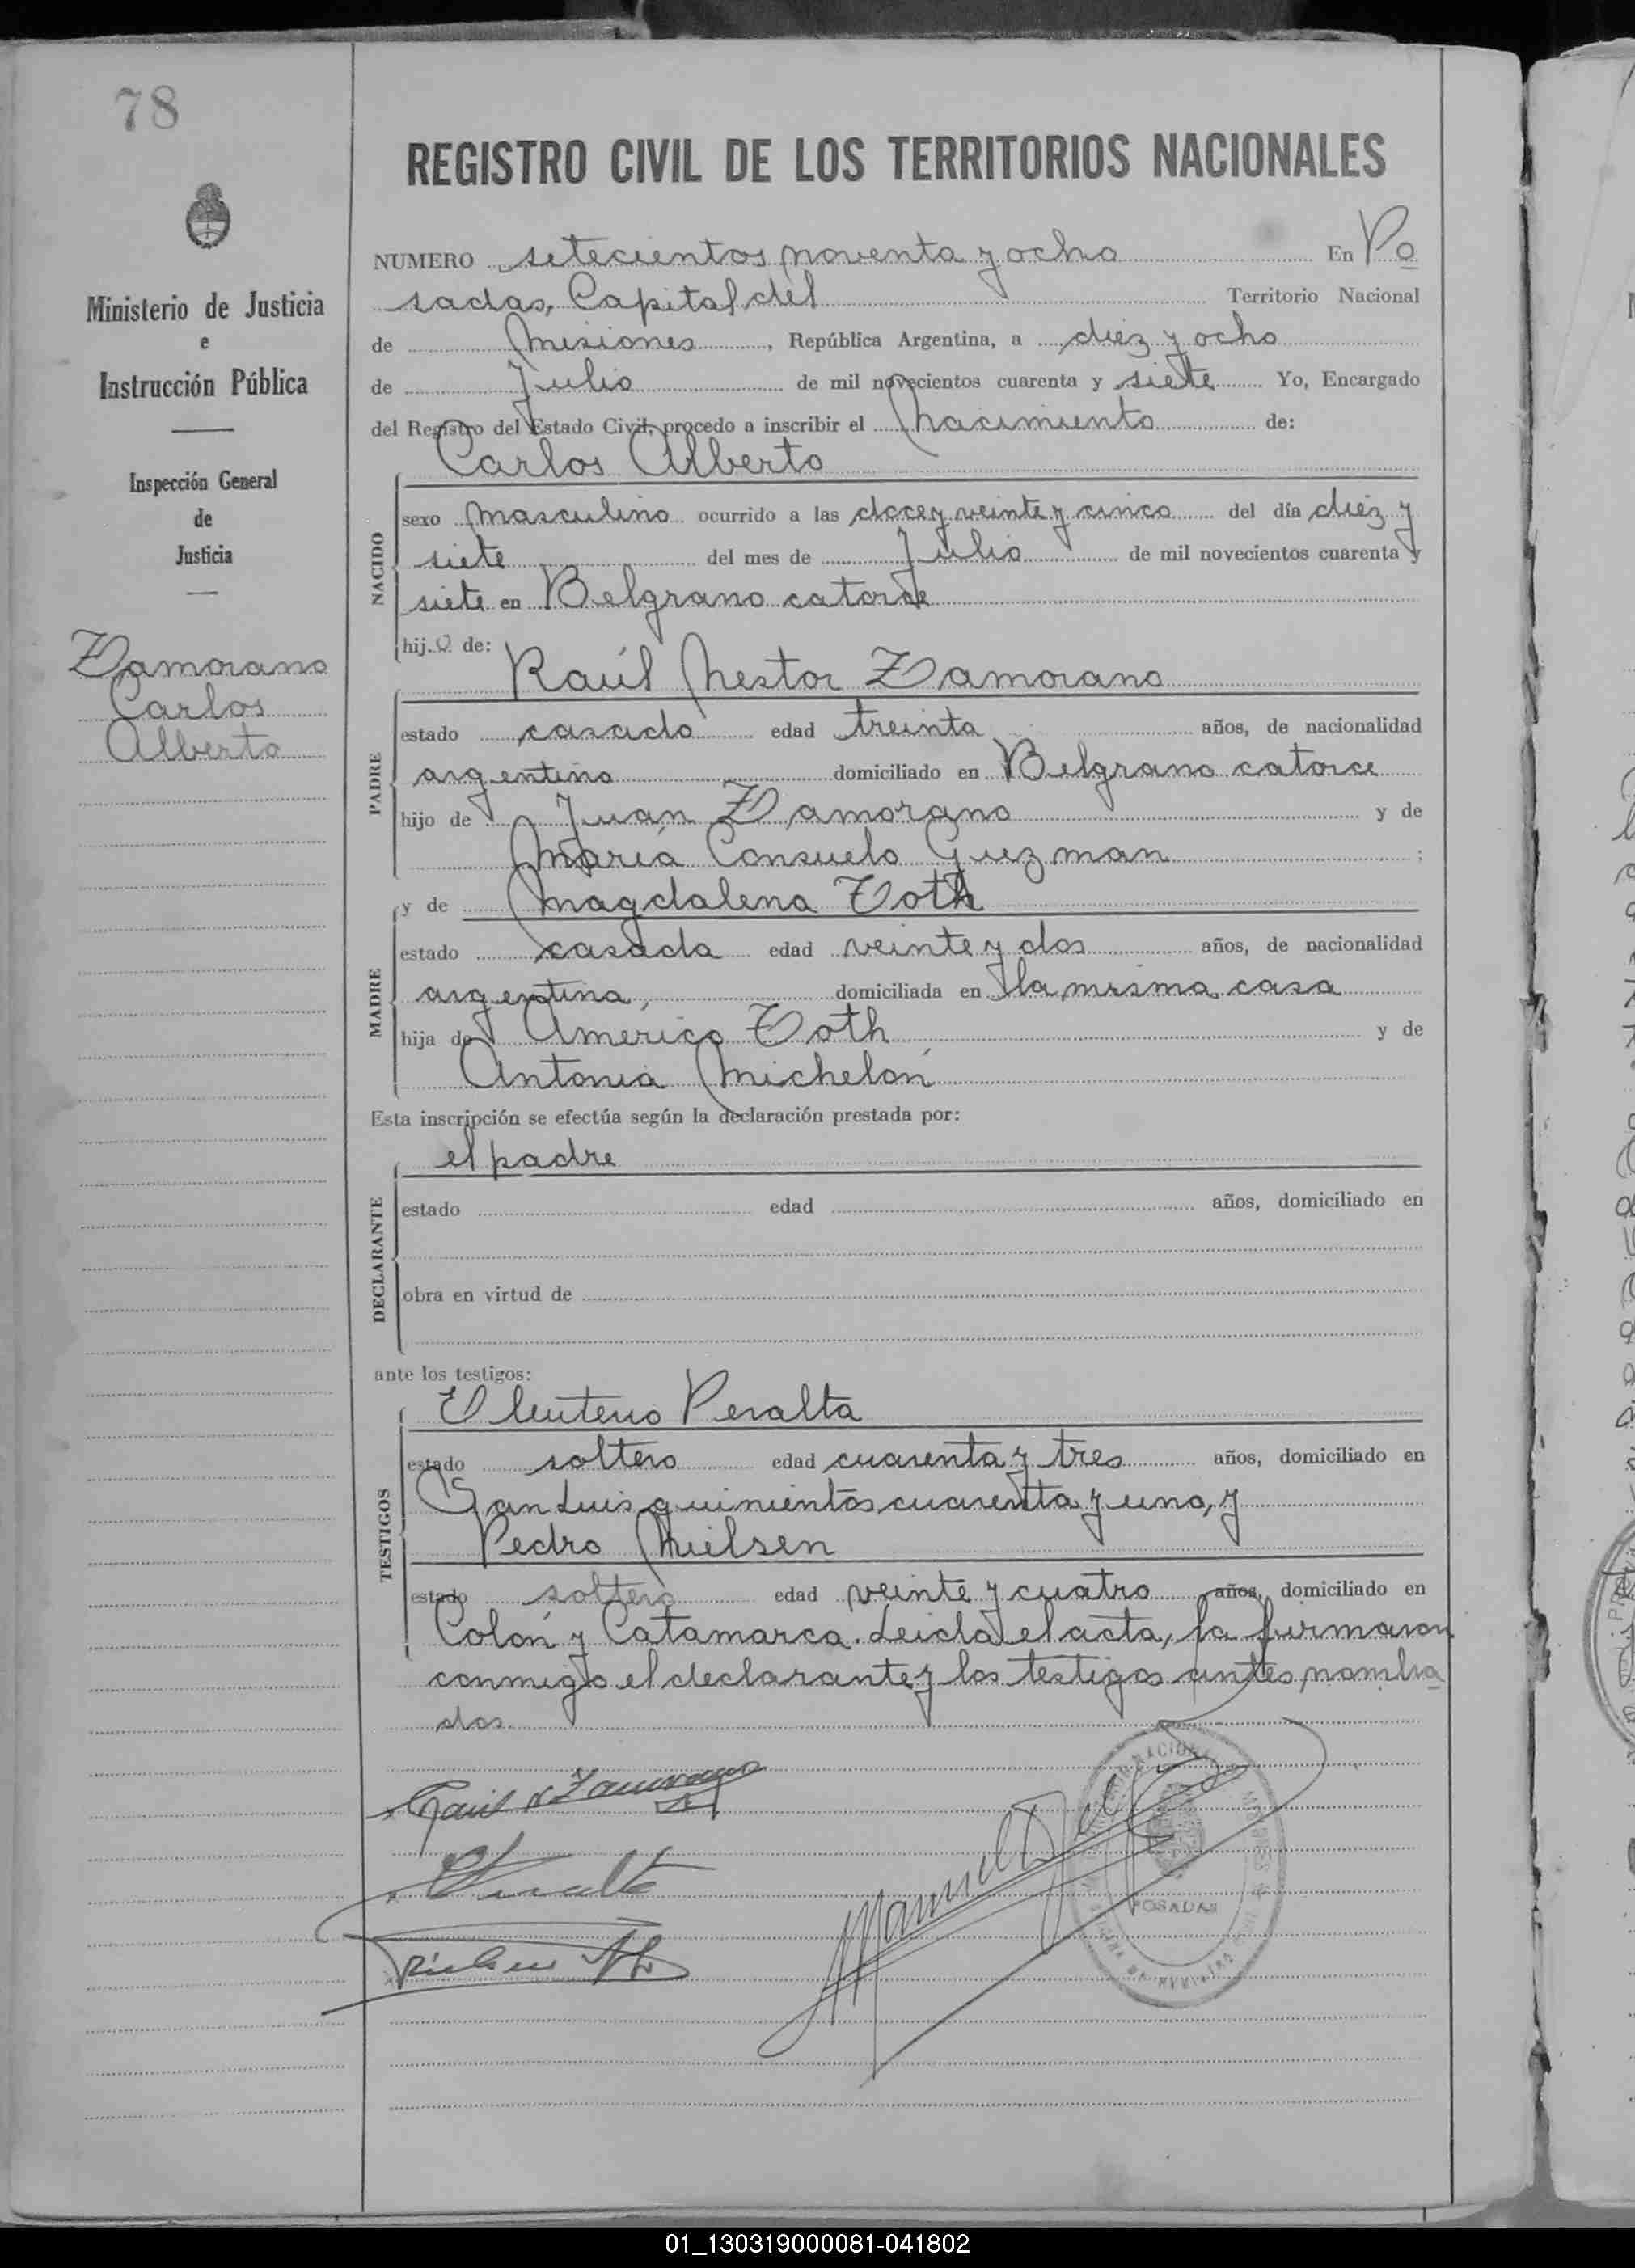 78
Ministerio de Justicia
e
Instrucción Pública
Inspección General
de
Justicia
Zamorano
Carlos
Alberto
REGISTRO CIVIL DE LOS TERRITORIOS NACIONALES
NUMERO setecientos noventa y ocho En Po
sadas, Capital del Territorio Nacional
de Misiones, República Argentina, a diez y ocho
de Julio de mil novecientos cuarenta y siete Yo, Encargado
del Registro del Estado Civil, procedo a inscribir el Nacimiento de:
Carlos Alberto
NACIDO
sexo masculino ocurrido a las doce y veinte y cinco del día diez y
siete del mes de Julio de mil novecientos cuarenta y
siete en Belgrano catorce
hijo de:
Raúl Nestor Zamorano
PADRE
estado casado edad treinta años, de nacionalidad
argentino domiciliado en Belgrano catorce
hijo de Juan Zamorano y de
María Consuelo Guzman ;
y de Magdalena Toth
MADRE
estado casada edad veinte y dos años, de nacionalidad
argentina, domiciliada en la misma casa
hija de Américo Toth y de
Antonia Michelón
Esta inscripción se efectúa según la declaración prestada por:
el padre
DECLARANTE
estado edad años, domiciliado en
obra en virtud de
ante los testigos:
Eleuterio Peralta
TESTIGOS
estado soltero edad cuarenta y tres años, domiciliado en
San Luis quinientos cuarenta y uno, y
Pedro Nielsen
estado soltero edad veinte y cuatro años, domiciliado en
Colón y Catamarca. Leída el acta, la firmaron
conmigo el declarante y los testigos antes nombra
dos.
Raúl N Zamorano
Peralta
Manuel
POSADAS
01_130319000081-041802